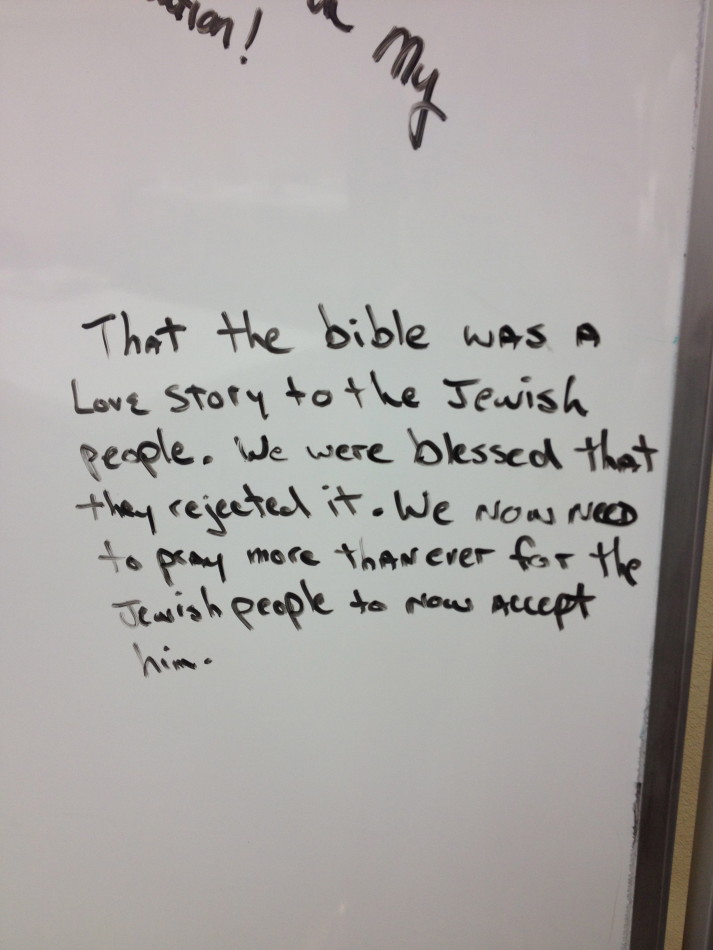 My
That the bible was A
Love story to the Jewish
people. We were blessed that
they rejected it. We now need
to pray more than ever for the
Jewish people to now accept
him.